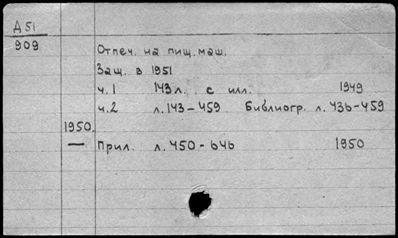 Д 51
909
Отпеч. на пищ. маш.
Защ. в 1951
ч. 1 143 л. с илл. 1949
ч. 2 л. 143-459 Библиогр. л. 436-459
1950.
— Прил. л. 450-646 1950